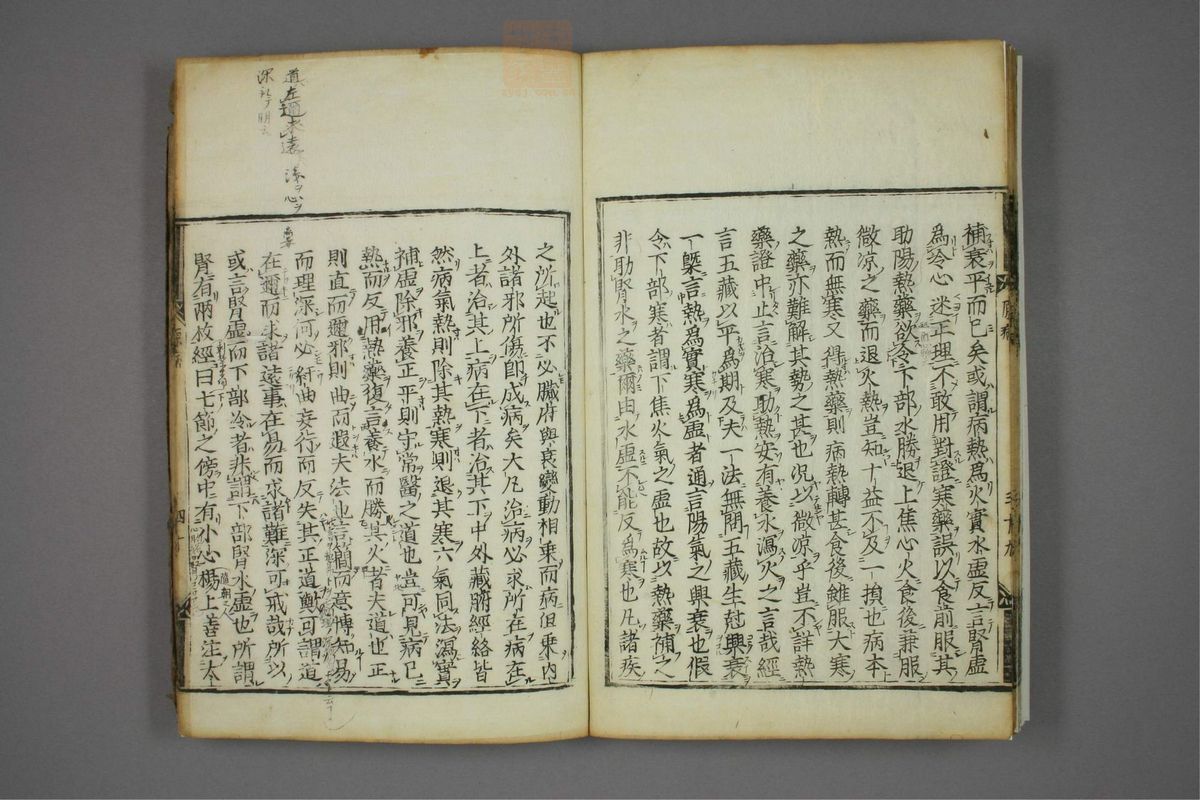 補衰平而已矣或謂病熱為火實水虛反言腎虛
為冷心迷正理不敢用對證寒藥誤以食前服其
助陽熱藥欲令下部水勝退上焦心火食後兼服
微凉之藥而退火熱豈知十益不及一損也病本
熱而無寒又得熱藥則病熱轉甚食後雖服大寒
之藥亦難解其勢之甚也况以微凉乎豈不詳熱
藥證中止言治寒助熱安有養水瀉火之言哉經
言五藏以平為期及夫一法無問五藏生尅興衰
一槩言熱為實寒為虛者通言陽氣之興衰也假
令下部寒者謂下焦火氣之虛也故以熱藥補之
非助腎水之藥爾由水虛不能反為寒也凡諸疾
之所起也不必臟府興衰變動相乘而病但乘内
外諸邪所傷即成病矣大凡治病必求所在病在
上者治其上病在下者治其下中外藏腑經絡皆
然病氣熱則除其熱寒則退其寒六氣同法瀉實
補虛除邪養正平則守常醫之道也豈可見病已
熱而反用熱藥復言養水而勝其火者夫道也正
則直而邇邪則曲而遐夫法也言簡而意博知易
而理深何必紆曲妄行而反失其正道歟可謂道
在邇而求諸遠事在易而求諸難深可戒哉所以
或言腎虛而下部冷者非謂下部腎水虛也所謂
腎有兩枚經曰七節之傍中有小心楊上善注太
道在邇求遠